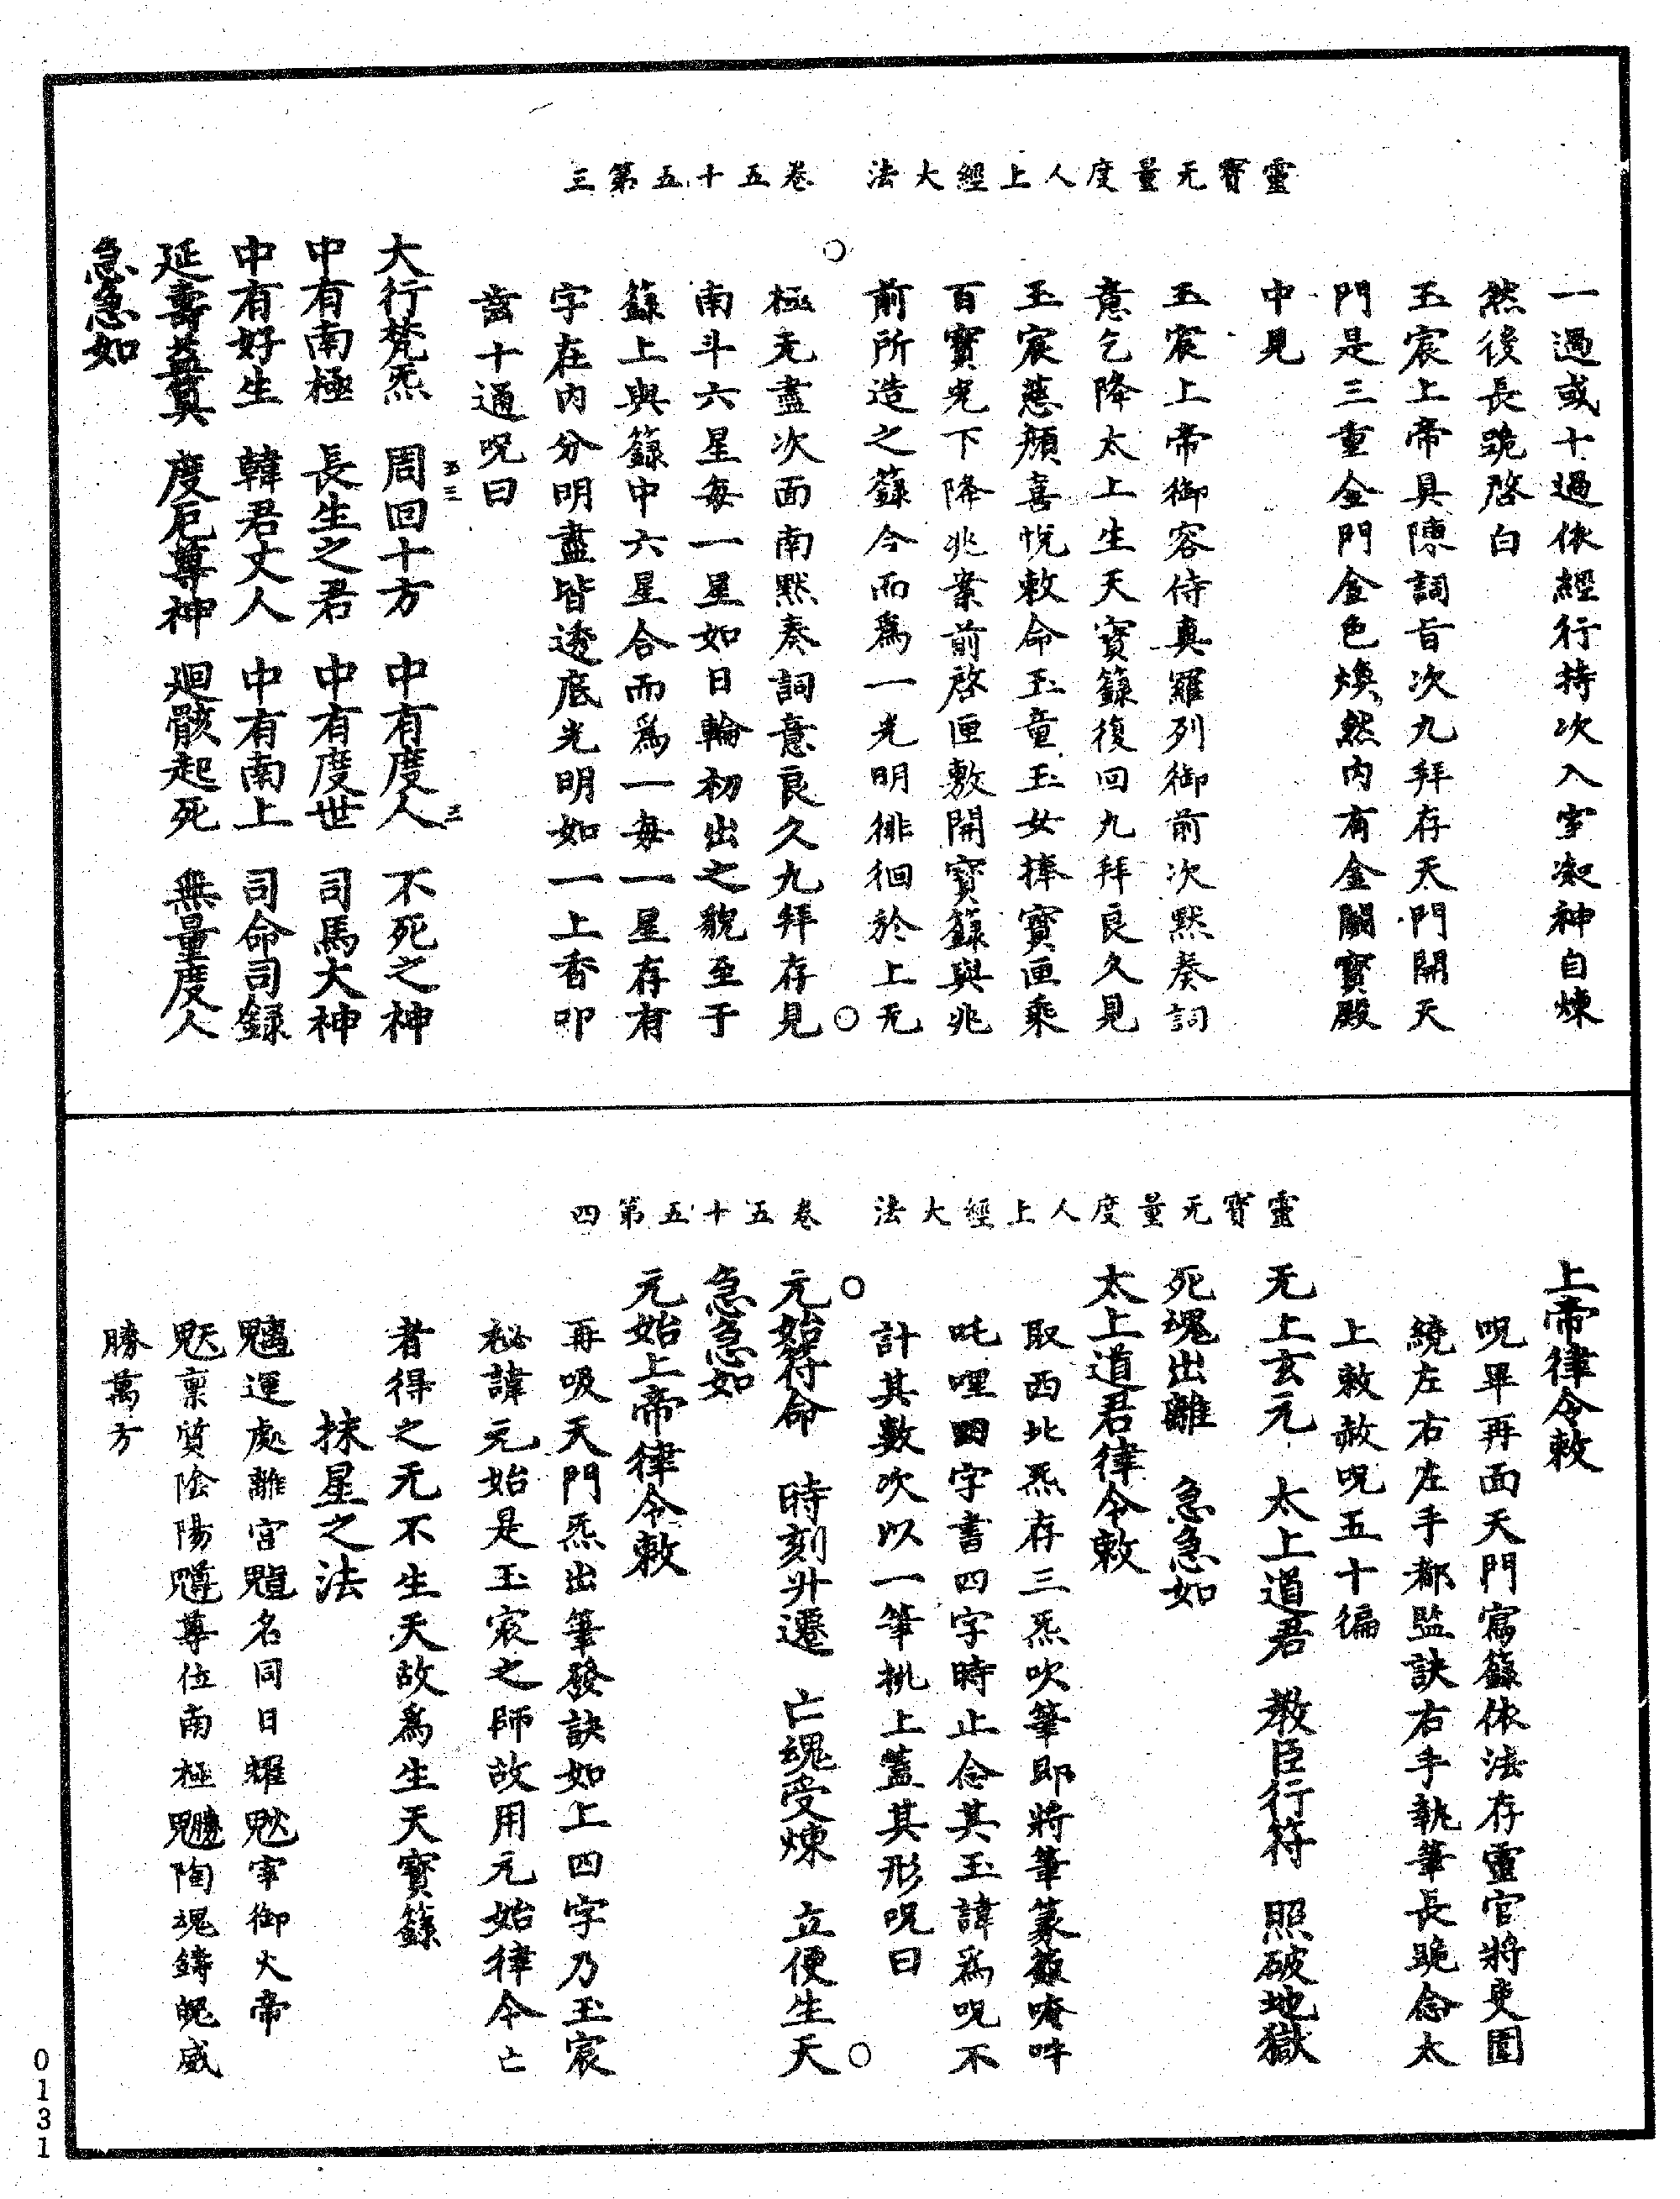 靈寶无量度人上經大法　卷五十五第三
一過或十過依經行持次入室凝神自煉
然後長跪啓白
玉宸上帝具陳詞旨次九拜存天門開天
門是三重金門金色煥然內有金闕寶殿
中見
玉宸上帝御容侍真羅列御前次默奏詞
意乞降太上生天寶籙復回九拜良久見
玉宸慈顏喜悅敕命玉童玉女捧寶匣乘
百寶光下降兆案前啓匣敷開寶籙與兆
前所造之籙合而爲一光明徘徊於上无
極无盡次面南默奏詞意良久九拜存見
南斗六星每一星如日輪初出之貌至于
籙上與籙中六星合而爲一每一星存有
字在內分明盡皆透底光明如一上香叩
齒十通呪曰
大行梵炁　周回十方　中有度人　不死之神
五三
三
中有南極　長生之君　中有度世　司馬大神
中有好生　韓君丈人　中有南上　司命司錄
延壽益算　度厄尊神　廻骸起死　無量度人
急急如
靈寶无量度人上經大法　卷五十五第四
上帝律令敕
呪畢再面天門寫籙依法存靈官將吏圍
繞左右左手都監訣右手執筆長跪念太
上敕赦呪五十徧
无上玄元　太上道君　教臣行符　照破地獄
死魂出離　急急如
太上道君律令敕
取西北炁存三炁吹筆即將筆篆籙唵吽
吒哩四字書四字時止念其玉諱爲呪不
計其數次以一筆挑上蓋其形呪曰
元始符命　時刻升遷　亡魂受煉　立便生天
急急如
元始上帝律令敕
再吸天門炁出筆發訣如上四字乃玉宸
秘諱元始是玉宸之師故用元始律令亡
者得之无不生天故爲生天寶籙
抹星之法
運處離宮名同日耀宰御火帝
稟質陰陽尊位南極陶魂鑄魄威
勝萬方
0131